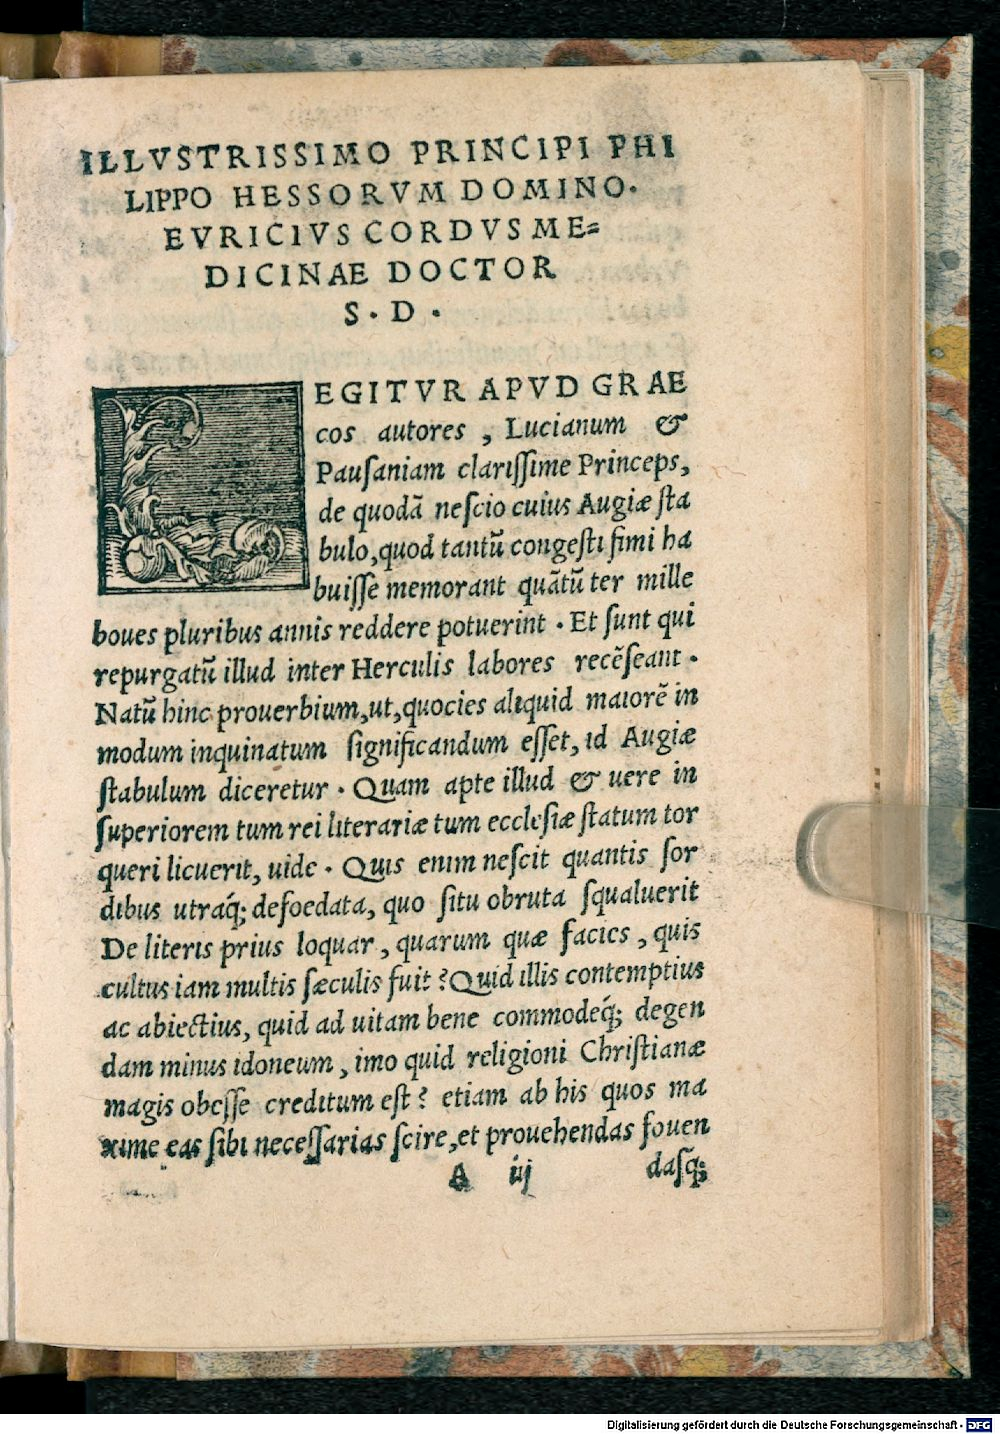 ILLVSTRISSIMO PRINCIPI PHI
LIPPO HESSORVM DOMINO.
EVRICIVS CORDVS ME=
DICINAE DOCTOR
S. D.
LEGITVR APVD GRAE
cos autores, Lucianum &
Pausaniam clarissime Princeps,
de quodã nescio cuius Augiæ sta
bulo, quod tantũ congesti fimi ha
buisse memorant quãtũ ter mille
boues pluribus annis reddere potuerint. Et sunt qui
repurgatũ illud inter Herculis labores recẽseant.
Natũ hinc prouerbium, ut, quocies aliquid maiorẽ in
modum inquinatum significandum esset, id Augiæ
stabulum diceretur. Quam apte illud & uere in
superiorem tum rei literariæ tum ecclesiæ statum tor
queri licuerit, uide. Quis enim nescit quantis sor
dibus utraq́; defoedata, quo situ obruta squaluerit
De literis prius loquar, quarum quæ facies, quis
cultus iam multis sæculis fuit? Quid illis contemptius
ac abiectius, quid ad uitam bene commodeq́; degen
dam minus idoneum, imo quid religioni Christianæ
magis obesse creditum est? etiam ab his quos ma
xime eas sibi necessarias scire, et prouehendas fouen
A iij dasq́;
Digitalisierung gefördert durch die Deutsche Forschungsgemeinschaft - DFG